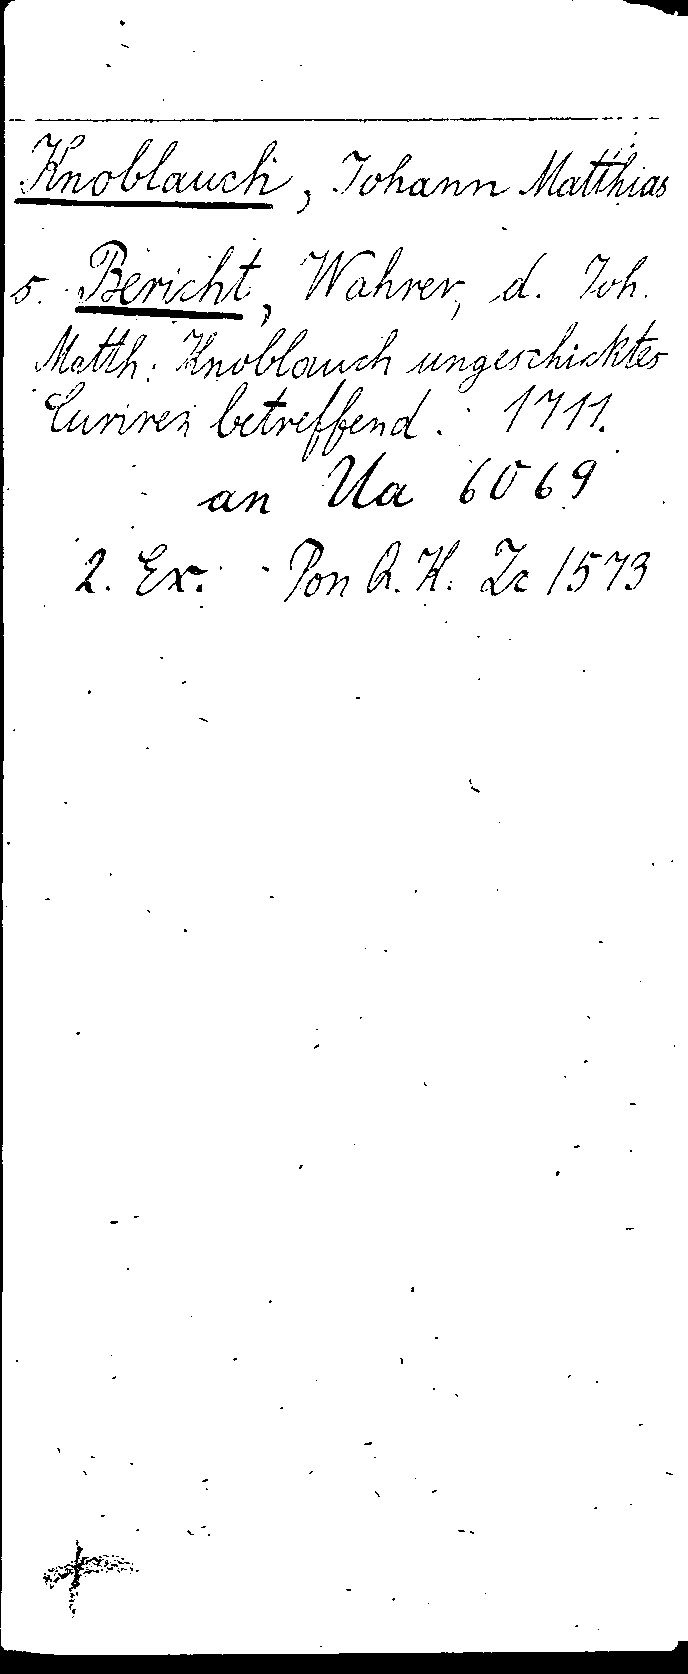 Knoblauch, Johann Matthias
s. Bericht, Wahrer, d. Joh.
Matth. Knoblauch ungeschicktes
Curiren betreffend. 1711.
an Ua 6069
2. Ex. Pon Q. K. Zc 1573